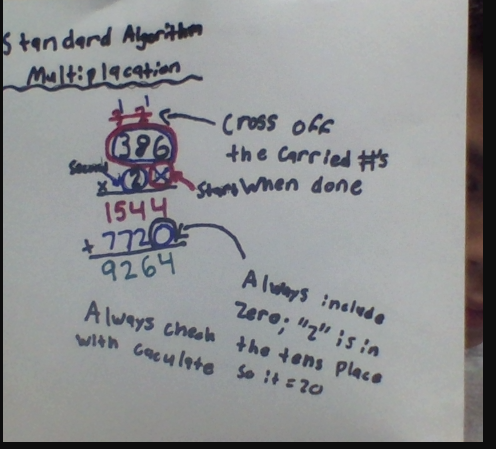 Standard Algorithm
Multiplacation
386
Cross off
the carried #'s
when done
Second
x 2
Start
1544
+ 7720
9264
Always include
Zero; "2" is in
the tens place
so it = 20
Always check
with caculate